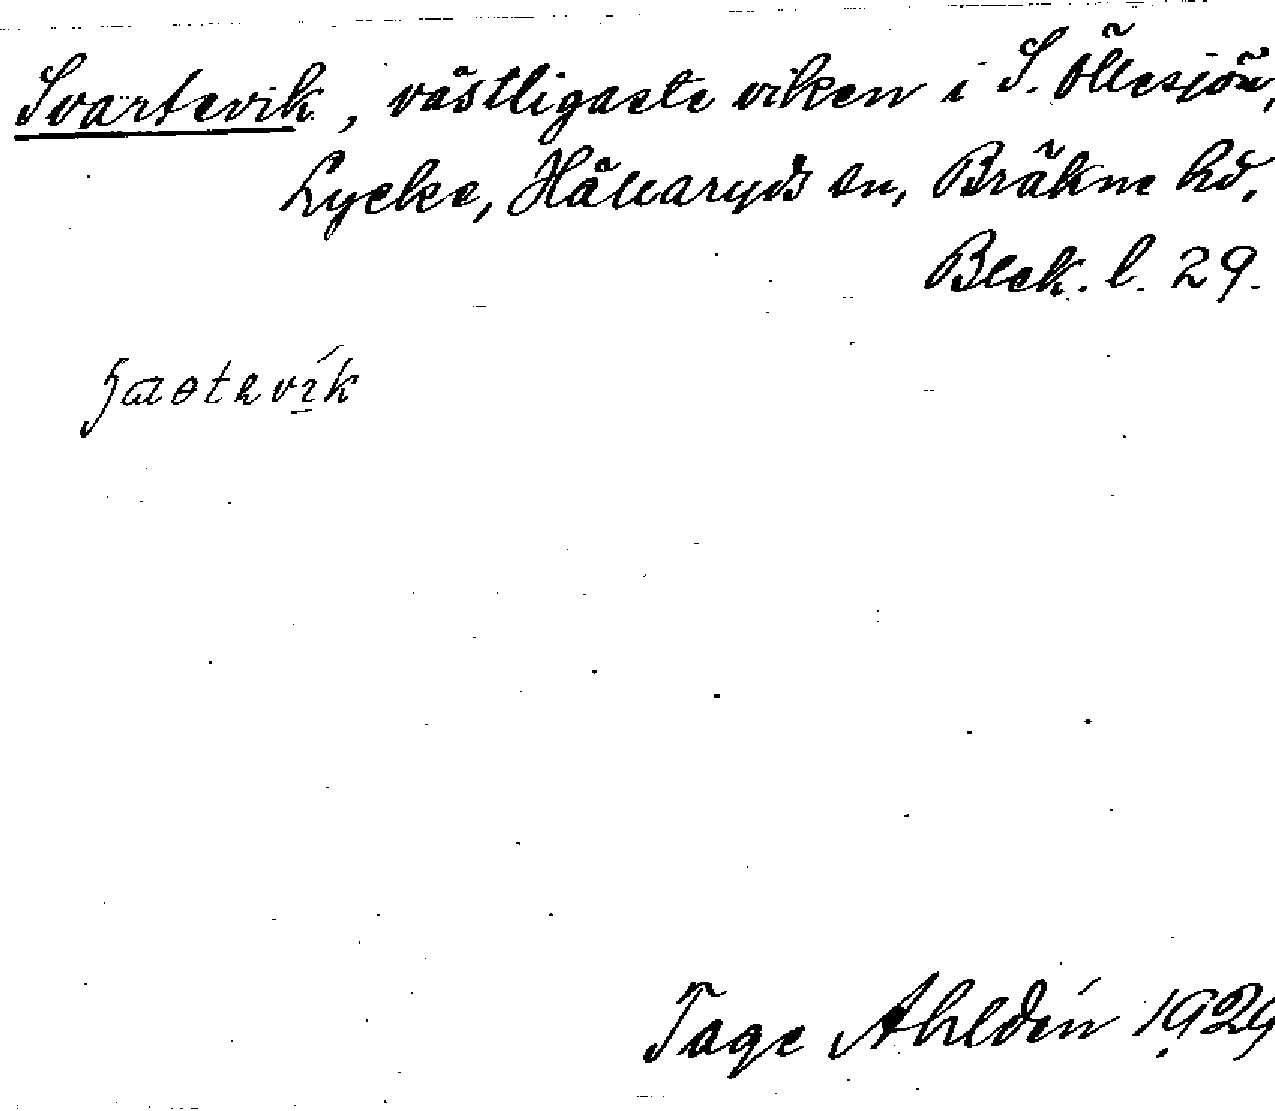 Svartevik, västligaste viken i S. Öllesjön,
Lycke, Hällaryds sn, Bräkne hd,
Blek. l. 29.
Tage Ahldén 1929